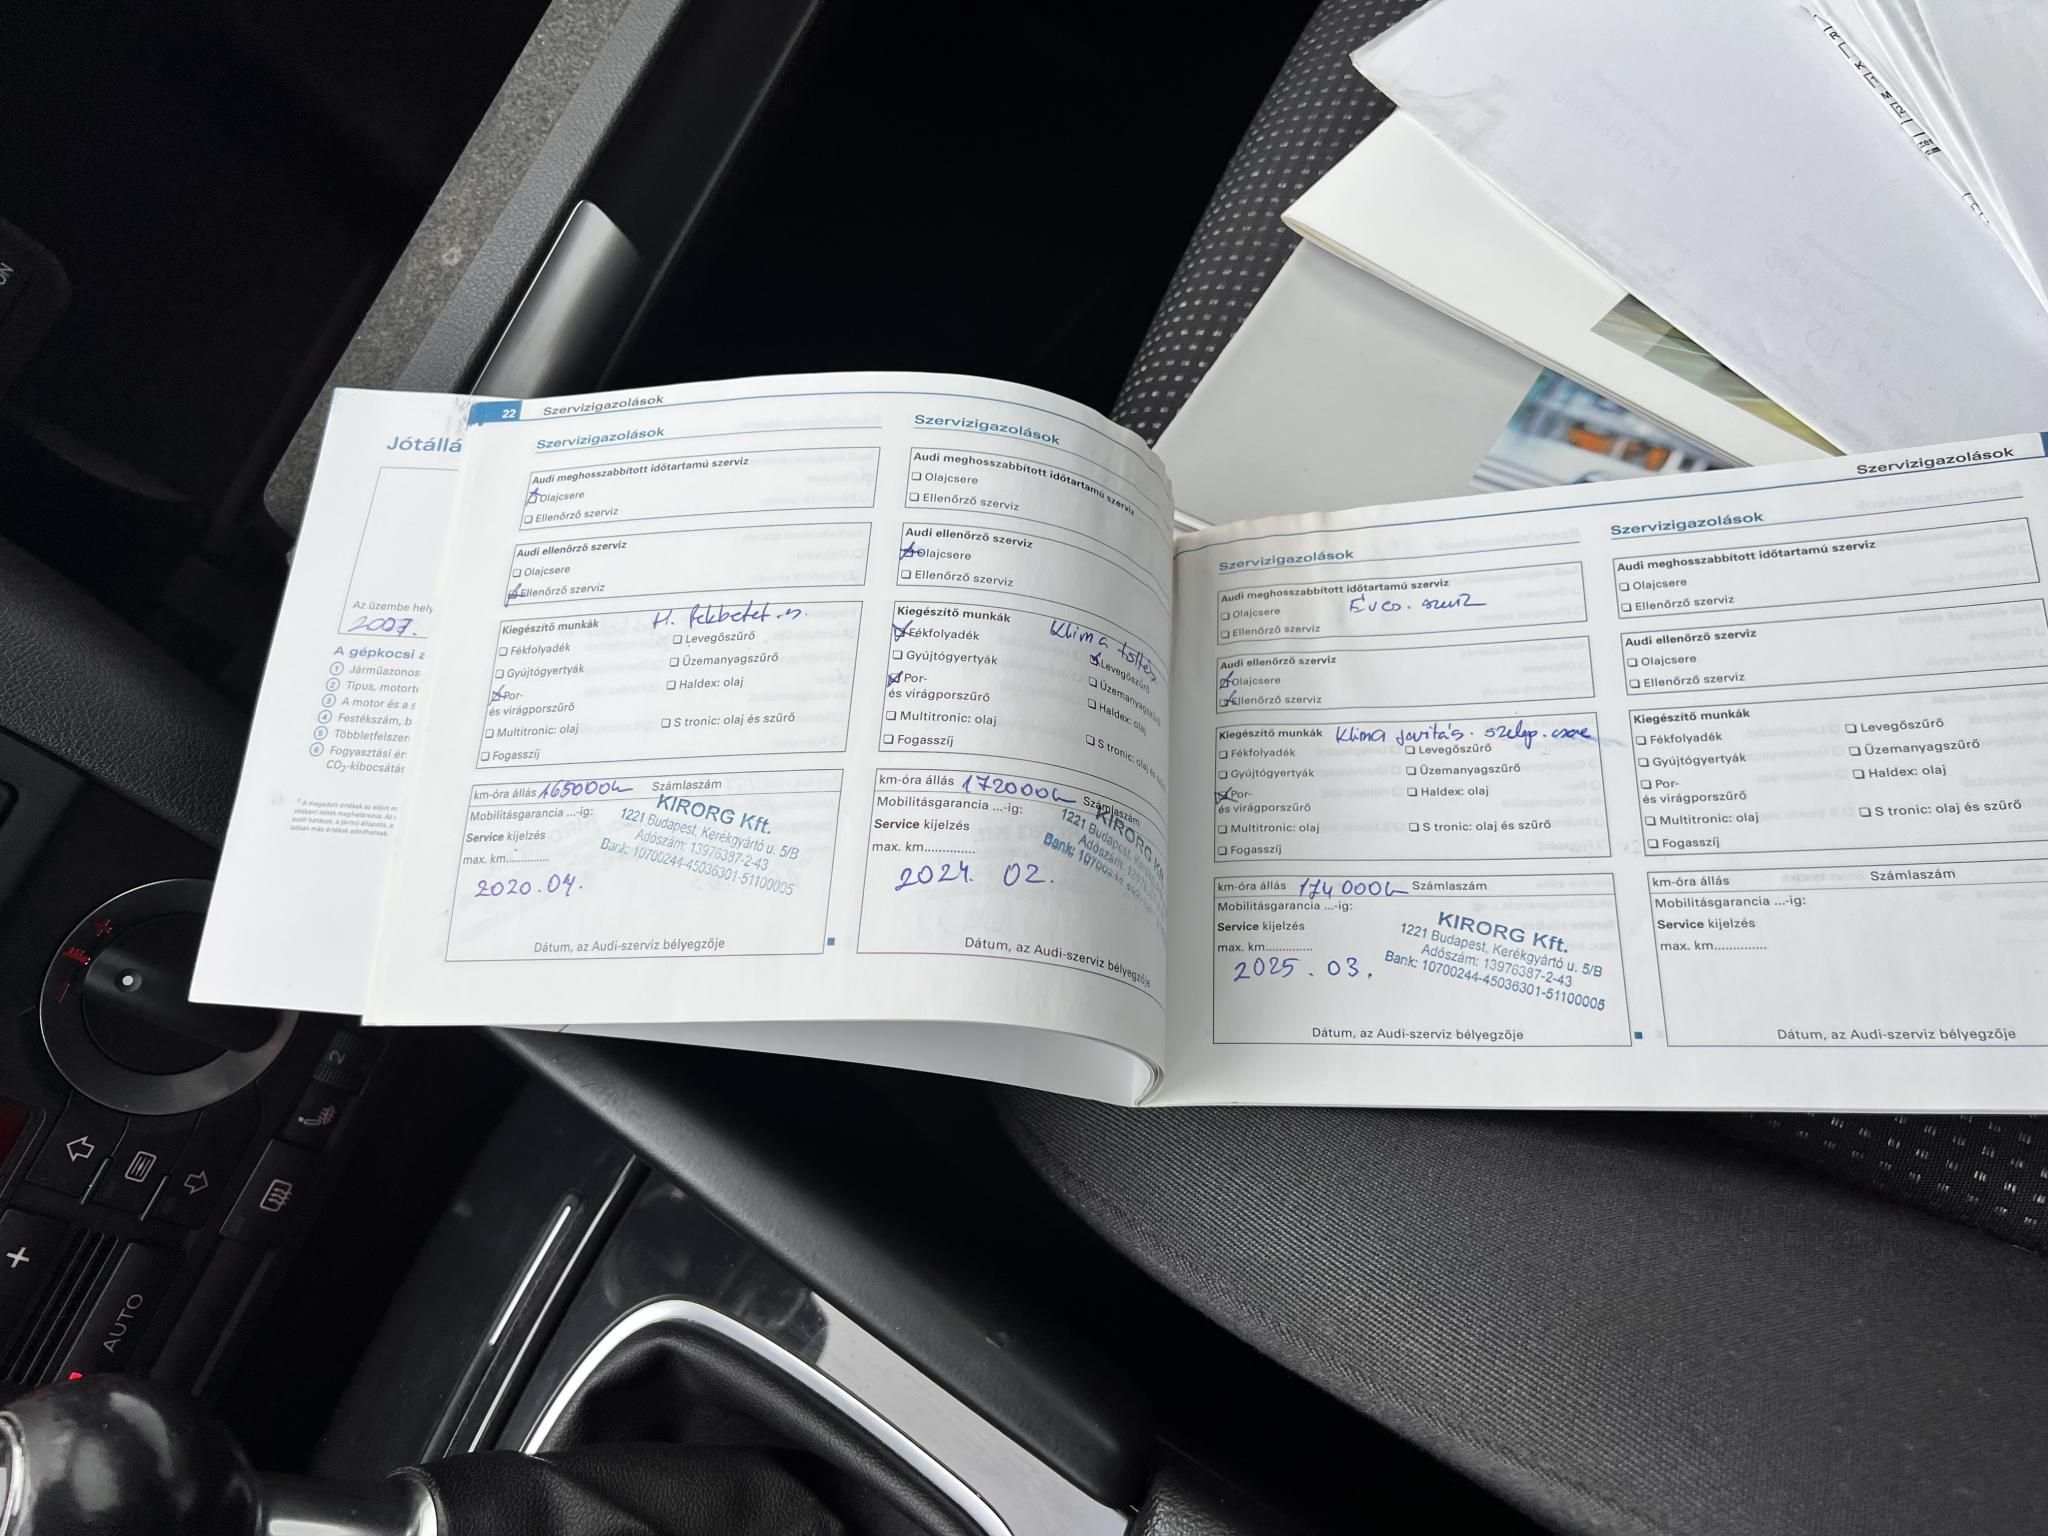 Jótállá
Az üzembe hely
2007.
A gépkocsi a
1 Járműazonos
2 Típus, motort
3 A motor és a s
4 Festékszám, b
5 Többletfelszer
6 Fogyasztási ér
CO2-kibocsátás
22 Szervizigazolások
Szervizigazolások
Audi meghosszabbított időtartamú szerviz
Olajcsere
Ellenőrző szerviz
Audi ellenőrző szerviz
Olajcsere
Ellenőrző szerviz
Kiegészítő munkák
Fékfolyadék
Levegőszűrő
Gyújtógyertyák
Üzemanyagszűrő
Por-
és virágporszűrő
Haldex: olaj
Multitronic: olaj
S tronic: olaj és szűrő
Fogasszíj
km-óra állás 165000 Számlaszám
Mobilitásgarancia ...-ig:
Service kijelzés
max. km.............
2020.04.
KIRORG Kft.
1221 Budapest, Kerékgyártó u. 5/B
Adószám: 13976387-2-43
Bank: 10700244-45036301-51100005
Dátum, az Audi-szerviz bélyegzője
Szervizigazolások
Audi meghosszabbított időtartamú szerviz
Olajcsere
Ellenőrző szerviz
Audi ellenőrző szerviz
Olajcsere
Ellenőrző szerviz
Kiegészítő munkák
Klima töltés
Fékfolyadék
Levegőszűrő
Gyújtógyertyák
Üzemanyagszűrő
Por-
és virágporszűrő
Haldex: olaj
Multitronic: olaj
S tronic: olaj és
Fogasszíj
km-óra állás 172000 Számlaszám
Mobilitásgarancia ...-ig:
Service kijelzés
max. km.............
2024. 02.
KIRORG
1221 Budapest,
Adószám:
Bank: 10700244
Dátum, az Audi-szerviz bélyegzője
Szervizigazolások
Szervizigazolások
Audi meghosszabbított időtartamú szerviz
Olajcsere
Éves. szerviz
Ellenőrző szerviz
Audi ellenőrző szerviz
Olajcsere
Ellenőrző szerviz
Kiegészítő munkák Klima javitás. szelep. csere
Fékfolyadék
Levegőszűrő
Gyújtógyertyák
Üzemanyagszűrő
Por-
és virágporszűrő
Haldex: olaj
Multitronic: olaj
S tronic: olaj és szűrő
Fogasszíj
km-óra állás 174000 Számlaszám
Mobilitásgarancia ...-ig:
Service kijelzés
max. km.............
2025. 03.
KIRORG Kft.
1221 Budapest, Kerékgyártó u. 5/B
Adószám: 13976387-2-43
Bank: 10700244-45036301-51100005
Dátum, az Audi-szerviz bélyegzője
Szervizigazolások
Audi meghosszabbított időtartamú szerviz
Olajcsere
Ellenőrző szerviz
Audi ellenőrző szerviz
Olajcsere
Ellenőrző szerviz
Kiegészítő munkák
Fékfolyadék
Levegőszűrő
Gyújtógyertyák
Üzemanyagszűrő
Por-
és virágporszűrő
Haldex: olaj
Multitronic: olaj
S tronic: olaj és szűrő
Fogasszíj
km-óra állás Számlaszám
Mobilitásgarancia ...-ig:
Service kijelzés
max. km.............
Dátum, az Audi-szerviz bélyegzője
2
AUTO